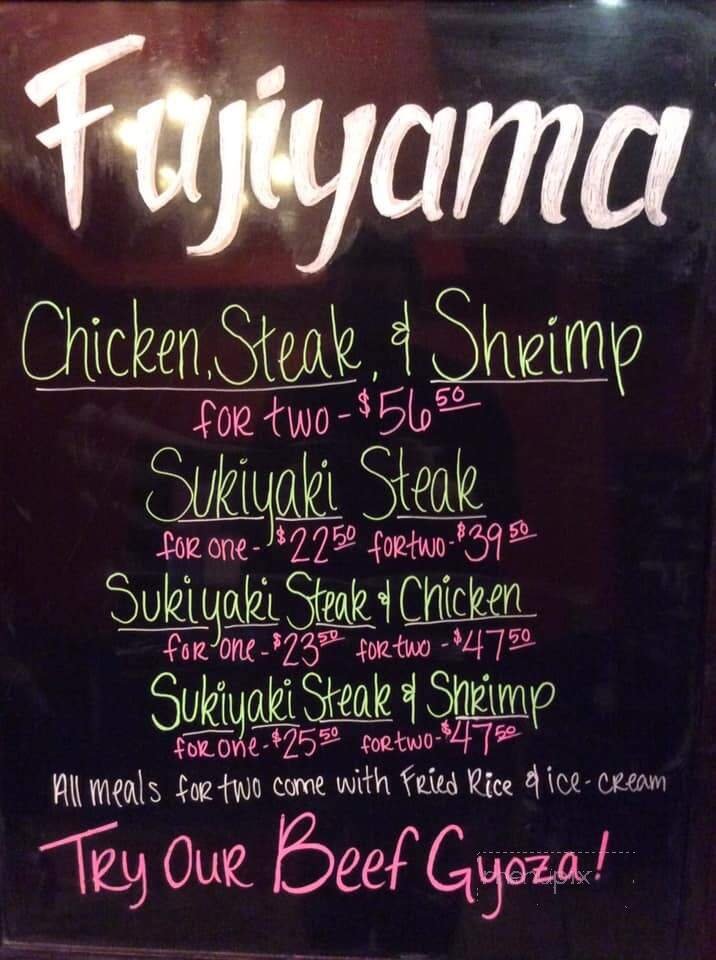 Fujiyama
Chicken, Steak, & Shrimp
for two - $56.50
Sukiyaki Steak
for one - $22.50 for two - $39.50
Sukiyaki Steak & Chicken
for one - $23.50 for two - $47.50
Sukiyaki Steak & Shrimp
for one - $25.50 for two - $47.50
All meals for two come with Fried Rice & ice-cream
Try Our Beef Gyoza!
menupix